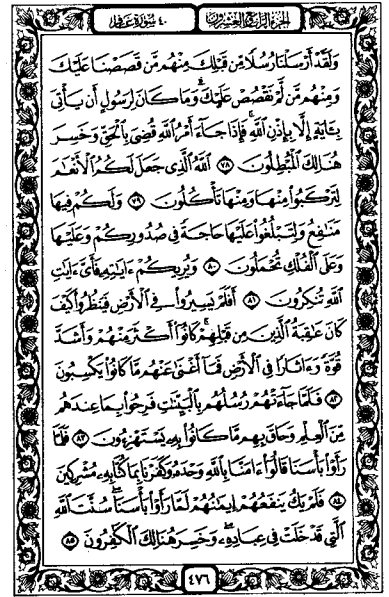 الجزء الرابع والعشرون
٤٠ سورة غافر
وَلَقَدْ أَرْسَلْنَا رُسُلًا مِّن قَبْلِكَ مِنْهُم مَّن قَصَصْنَا عَلَيْكَ
وَمِنْهُم مَّن لَّمْ نَقْصُصْ عَلَيْكَ ۗ وَمَا كَانَ لِرَسُولٍ أَن يَأْتِىَ
بِـَٔايَةٍ إِلَّا بِإِذْنِ ٱللَّهِ ۚ فَإِذَا جَآءَ أَمْرُ ٱللَّهِ قُضِىَ بِٱلْحَقِّ وَخَسِرَ
هُنَالِكَ ٱلْمُبْطِلُونَ ﴿٧٨﴾ ٱللَّهُ ٱلَّذِى جَعَلَ لَكُمُ ٱلْأَنْعَٰمَ
لِتَرْكَبُوا۟ مِنْهَا وَمِنْهَا تَأْكُلُونَ ﴿٧٩﴾ وَلَكُمْ فِيهَا
مَنَٰفِعُ وَلِتَبْلُغُوا۟ عَلَيْهَا حَاجَةً فِى صُدُورِكُمْ وَعَلَيْهَا
وَعَلَى ٱلْفُلْكِ تُحْمَلُونَ ﴿٨٠﴾ وَيُرِيكُمْ ءَايَٰتِهِۦ فَأَىَّ ءَايَٰتِ
ٱللَّهِ تُنكِرُونَ ﴿٨١﴾ أَفَلَمْ يَسِيرُوا۟ فِى ٱلْأَرْضِ فَيَنظُرُوا۟ كَيْفَ
كَانَ عَٰقِبَةُ ٱلَّذِينَ مِن قَبْلِهِمْ ۚ كَانُوٓا۟ أَكْثَرَ مِنْهُمْ وَأَشَدَّ
قُوَّةً وَءَاثَارًا فِى ٱلْأَرْضِ فَمَآ أَغْنَىٰ عَنْهُم مَّا كَانُوا۟ يَكْسِبُونَ
﴿٨٢﴾ فَلَمَّا جَآءَتْهُمْ رُسُلُهُم بِٱلْبَيِّنَٰتِ فَرِحُوا۟ بِمَا عِندَهُم
مِّنَ ٱلْعِلْمِ وَحَاقَ بِهِم مَّا كَانُوا۟ بِهِۦ يَسْتَهْزِءُونَ ﴿٨٣﴾ فَلَمَّا
رَأَوْا۟ بَأْسَنَا قَالُوٓا۟ ءَامَنَّا بِٱللَّهِ وَحْدَهُۥ وَكَفَرْنَا بِمَا كُنَّا بِهِۦ مُشْرِكِينَ
﴿٨٤﴾ فَلَمْ يَكُ يَنفَعُهُمْ إِيمَٰنُهُمْ لَمَّا رَأَوْا۟ بَأْسَنَا ۖ سُنَّتَ ٱللَّهِ
ٱلَّتِى قَدْ خَلَتْ فِى عِبَادِهِۦ ۖ وَخَسِرَ هُنَالِكَ ٱلْكَٰفِرُونَ ﴿٨٥﴾
٤٧٦